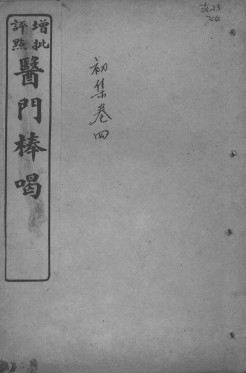 增批
評點
醫門棒喝
初集卷四